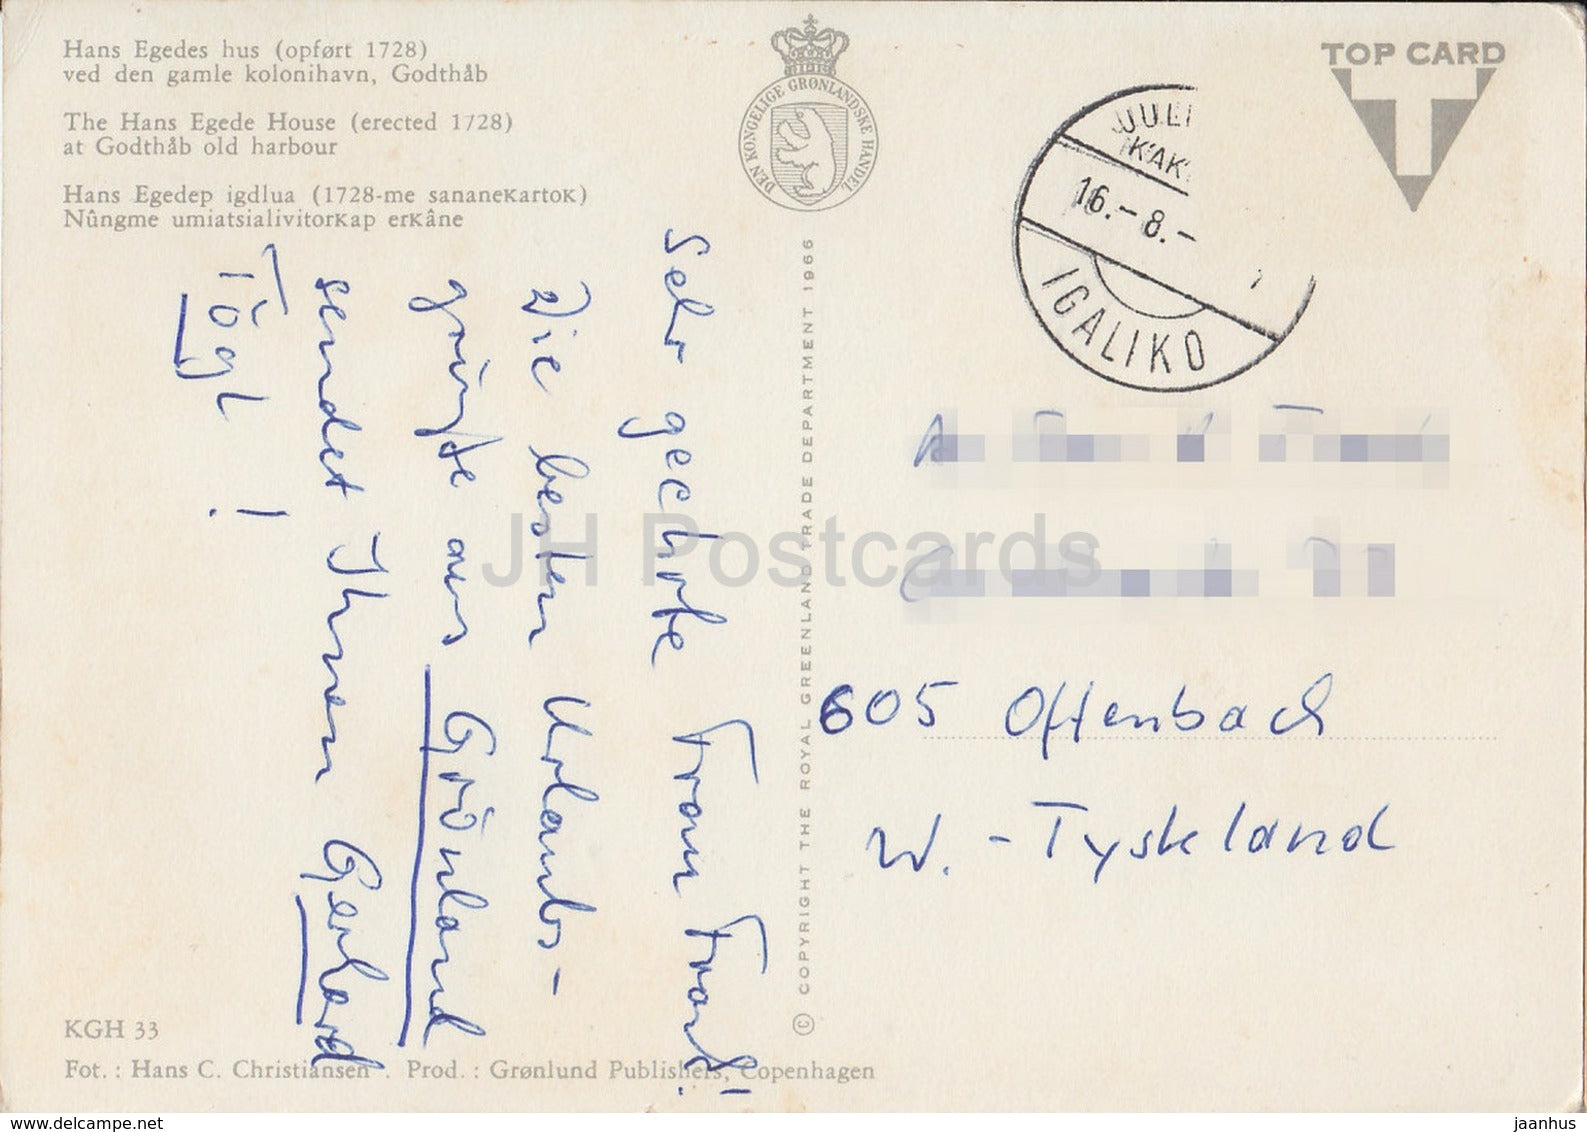 Hans Egedes hus (opført 1728)
ved den gamle kolonihavn, Godthåb
The Hans Egede House (erected 1728)
at Godthåb old harbour
Hans Egedep igdlua (1728-me sananeKartoK)
Nûngme umiatsialivitorKap erKâne
DEN KONGELIGE GRØNLANDSKE HANDEL
TOP CARD
16.-8.-
IGALIKO
Sehr geehrte Frau Frank!
Die besten Urlaubs-
grüße aus Grönland
sendet Ihnen Gerhard
Tögl!
605 Offenbach
W.-Tyskland
© COPYRIGHT THE ROYAL GREENLAND TRADE DEPARTMENT 1966
KGH 33
Fot.: Hans C. Christiansen. Prod.: Grønlund Publishers, Copenhagen
JH Postcards
www.delcampe.net
jaanhus